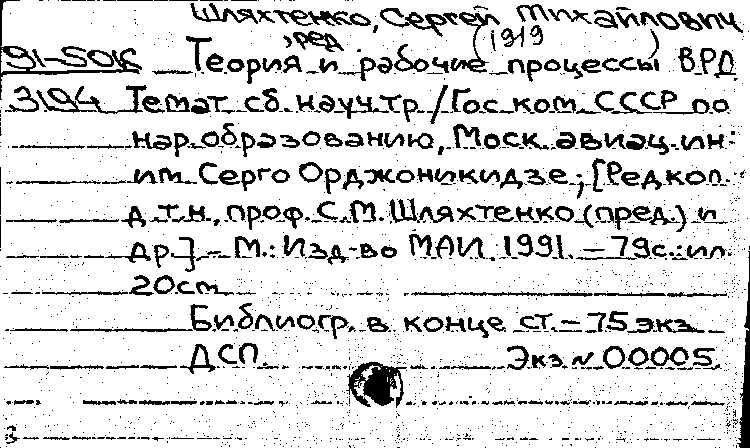 Шляхтенко, Сергей Михайлович
, ред (1919 )
91-5016 Теория и рабочие процессы ВРД
3194 Темат. сб. науч. тр. / Гос ком. СССР по
нар. образованию, Моск. авиац. ин-
им. Серго Орджоникидзе; [Редкол.
д.т.н., проф. С.М. Шляхтенко (пред.) и
др.] - М.: Изд-во МАИ, 1991. - 79с.: ил.
20cm
Библиогр. в конце ст. - 75 экз
ДСП. Экз N 00005